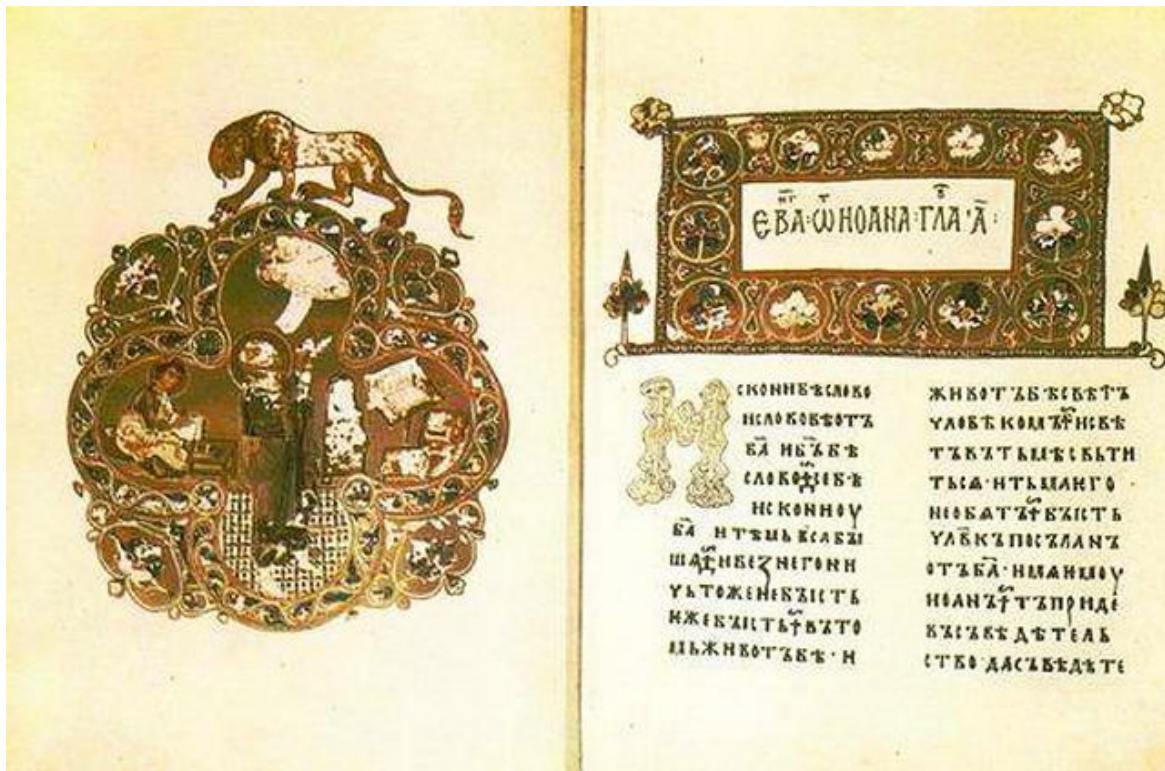 ЄВА҃·Ѿ ИОАНА·ГЛА·А҃·
ИСКОНИБѢСЛОВО
ИСЛОВОБѢОТЪ
БА҃ ИБ҃ЪБѢ
СЛОВО СЕБѢ
ИСКОНИОУ
БА҃ ИТѢМЬВСАБЫ
ША ИБЕЗНЕГОНИ
ЧЬТОЖЕНЕБЪІСТЬ
ИЖЕБЪІСТЬ ВЪТО
МЬЖИВОТЪБѢ·И
ЖИВОТЪБѢСВѢТЪ
ЧЛОВѢКОМЪ ИСВѢ
ТЪВЪТЬМѢСВЬТИ
ТЬСѦ·ИТЬМАѤГО·
НЕОБѦТЪ БЪІСТЬ
ЧЛ҃ВКЪПОСЪЛАНЪ
ОТЪБА҃·ИМѦѤМОУ
ИОАНЪ ТЪПРИДЕ
ВЪСЪВѢДѢТЕЛЬ
СТВО·ДАСЪВѢДѢТЕ